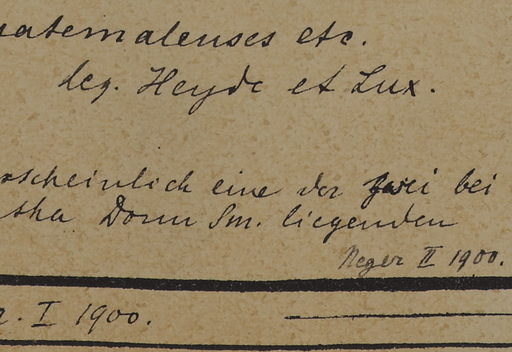 uatemalenses etc.
leg. Heyde et Lux.
rscheinlich eine der zwei bei
tha Donn Sm. liegenden
Neger II 1900.
r. I 1900.